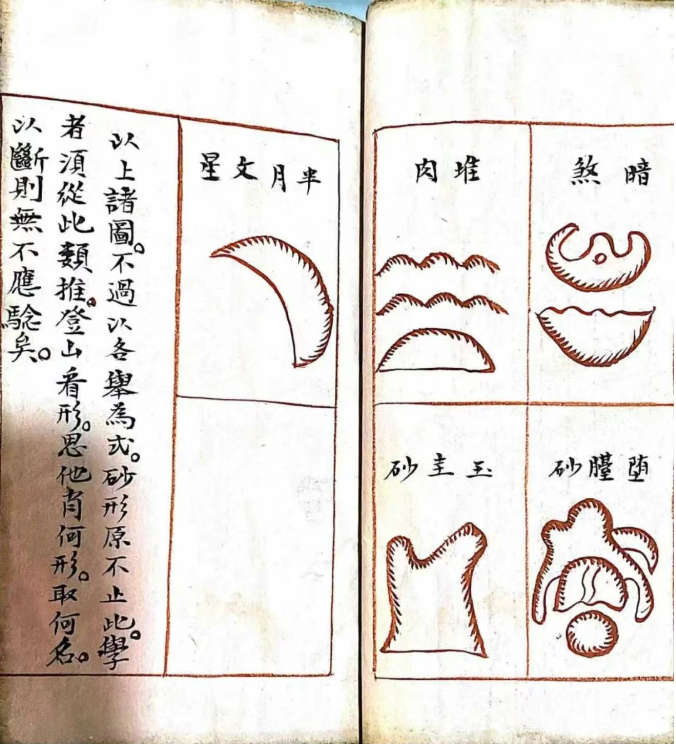 暗煞
堆肉
堕砂
玉圭砂
半月文星
以上諸圖。不過以各舉為式。砂形原不止此。學
者須從此類推。登山看形。思他肖何形。取何名。
以斷則無不應騐矣。